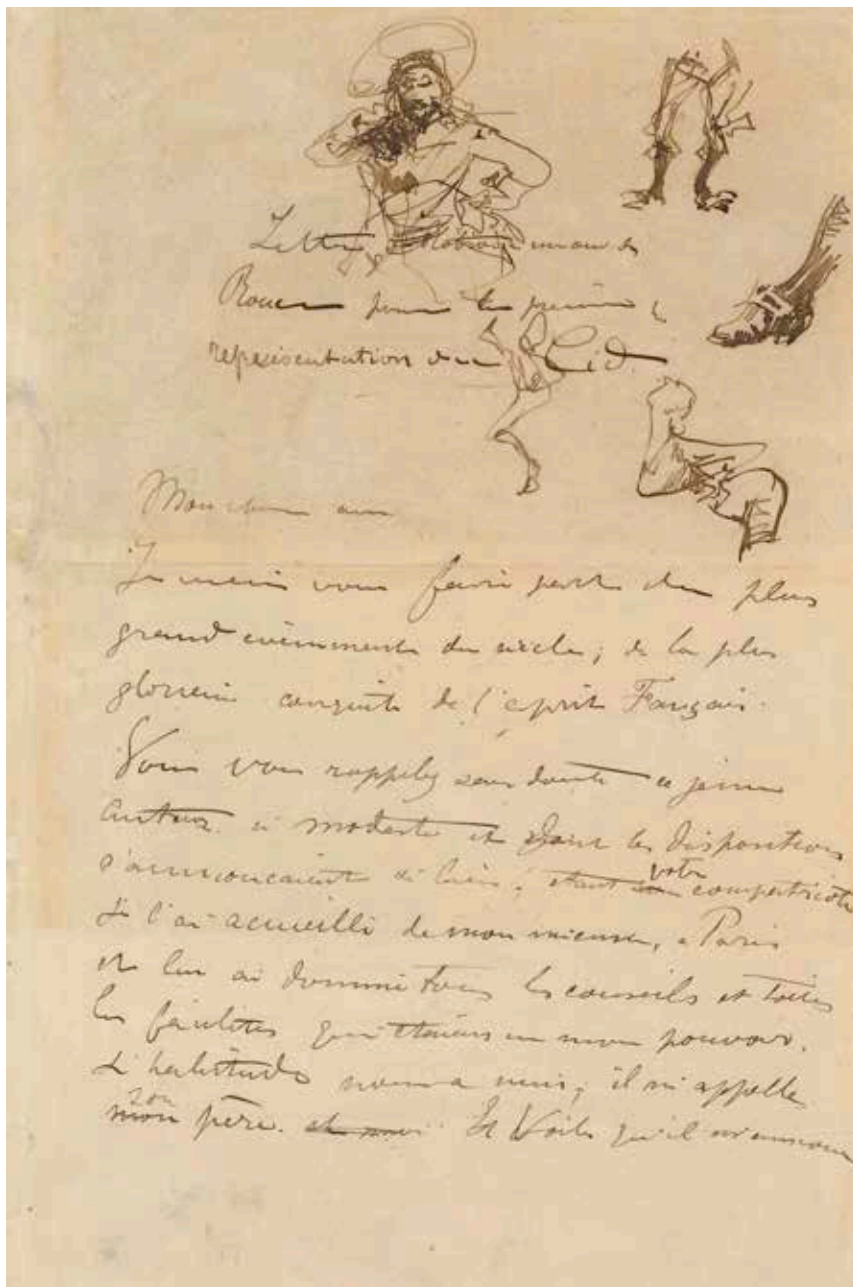 Lettre de
Rouen pour la première
représentation du Cid.
Mon cher ami
Je viens vous faire part du plus
grand evènnement du siècle; de la plus
glorieuse conquête de l'esprit Français.
Vous vous rappelez sans doute ce jeune
auteur si modeste et dont les dispositions
s'annoncaient si bien; étant votre compatriote
je l'ai acueilli de mon mieux, a Paris
et lui ai donné tous les conseils et toutes
les facilités qui étaient en mon pouvoir.
L'habitude nous a unis; il m'appelle
son père. Et voila qu'il